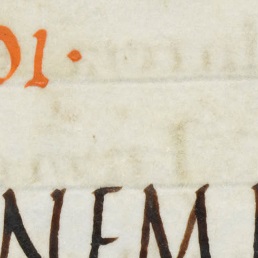 DI·
NEM